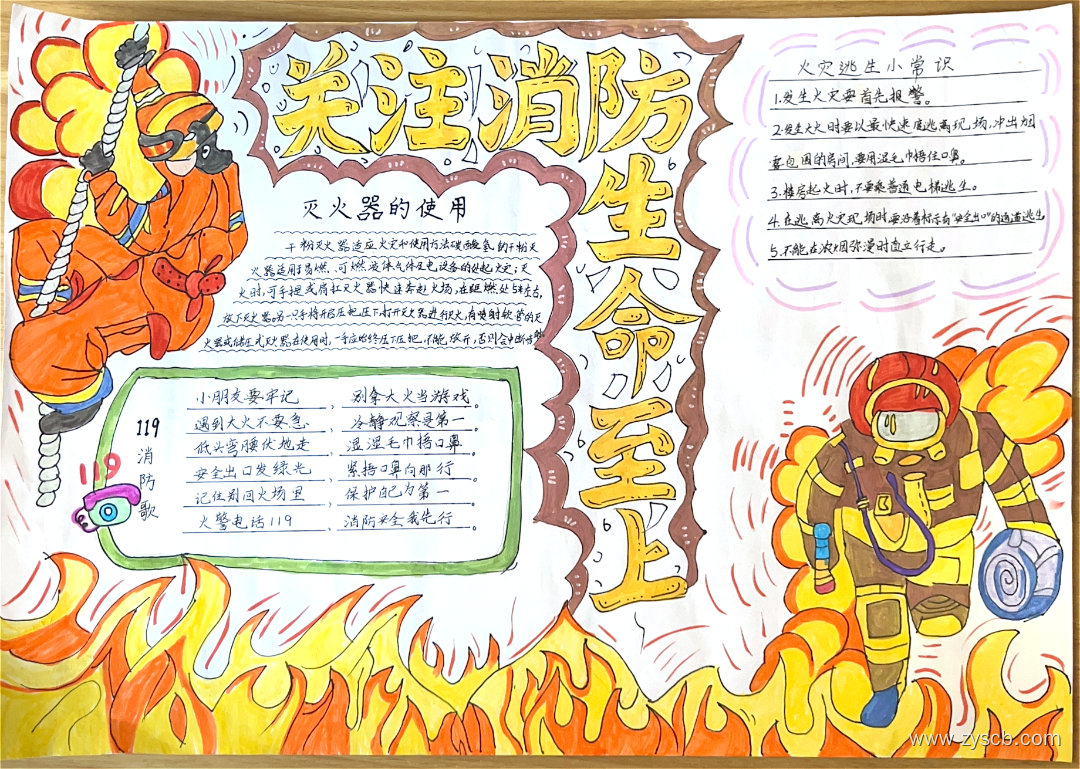 关注消防
生命至上
灭火器的使用
干粉灭火器适应火灾和使用方法碳酸氢钠干粉灭
火器适用于易燃、可燃液体气体及电设备的处起火灾；灭
火时，可手提或肩扛灭火器快速奔赴火场，在距燃处5米左右，
放下灭火器。另一只手将开启压把压下，打开灭火器进行灭火，有喷射软管的灭
火器或储压式灭火器在使用时，一手应始终压下压把，不能放开，否则会中断
119
消防歌
119
小朋友要牢记，别拿大火当游戏。
遇到大火不要急，冷静观察是第一。
低头弯腰伏地走，湿湿毛巾捂口鼻。
安全出口发绿光，紧捂口鼻向那行。
记住别回火场里，保护自己为第一。
火警电话119，消防安全我先行。
火灾逃生小常识
1.发生火灾要首先报警。
2.发生火灾时要以最快速度逃离现场，冲出烟
雾包围的房间，要用湿毛巾捂住口鼻。
3.楼房起火时，不要乘普通电梯逃生。
4.在逃离火灾现场时要沿着标示有"安全出口"的通道逃生
5.不能在浓烟弥漫时直立行走。
www.zyscb.com